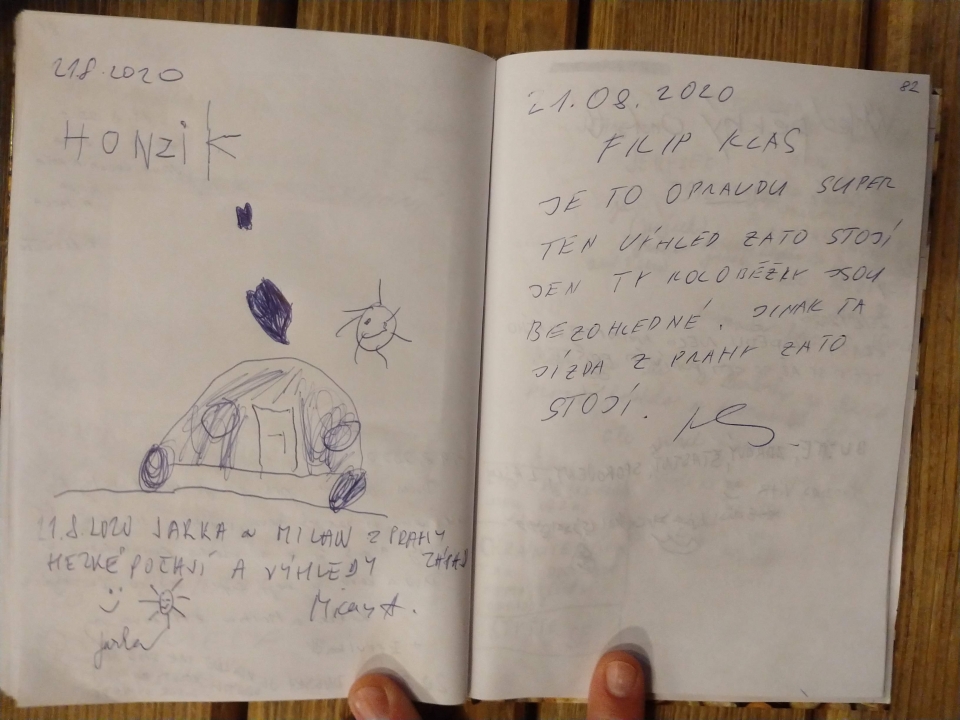 21.8.2020
HONZÍK
21.8.2020 JARKA a MILAN Z PRAHY
HEZKÉ POČASÍ A VÝHLEDY
Jarka
82
21.08.2020
FILIP KLAS
JE TO OPRAVDU SUPER
TEN VÝHLED ZATO STOJÍ
JEN TY KOLOBĚŽKY JSOU
BEZOHLEDNÉ. JINAK TA
JÍZDA Z PRAHY ZATO
STOJÍ.